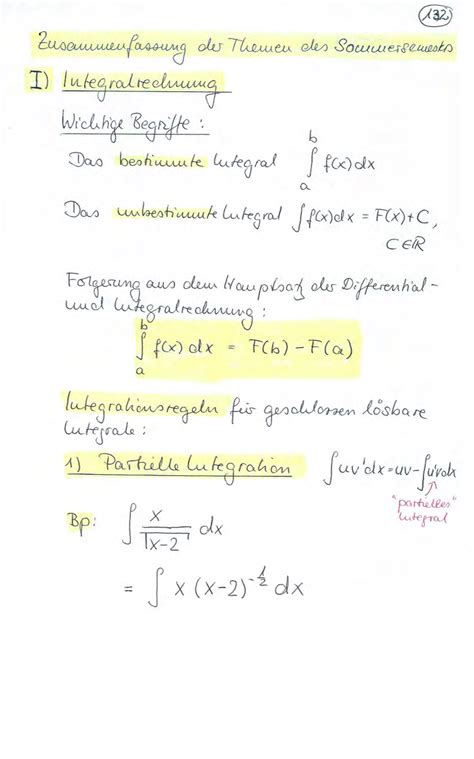 132
Zusammenfassung der Themen des Sommersemesters
I) Integralrechnung
Wichtige Begriffe:
Das bestimmte Integral ∫_a^b f(x)dx
Das unbestimmte Integral ∫f(x)dx = F(x)+C,
C∈ℝ
Folgerung aus dem Hauptsatz der Differential-
und Integralrechnung:
∫_a^b f(x)dx = F(b) - F(a)
Integrationsregeln für geschlossen lösbare
Integrale:
1) Partielle Integration ∫uv'dx=uv-∫u'vdx
"partielles"
Integral
Bp: ∫ x/√(x-2) dx
= ∫ x (x-2)^(-1/2) dx